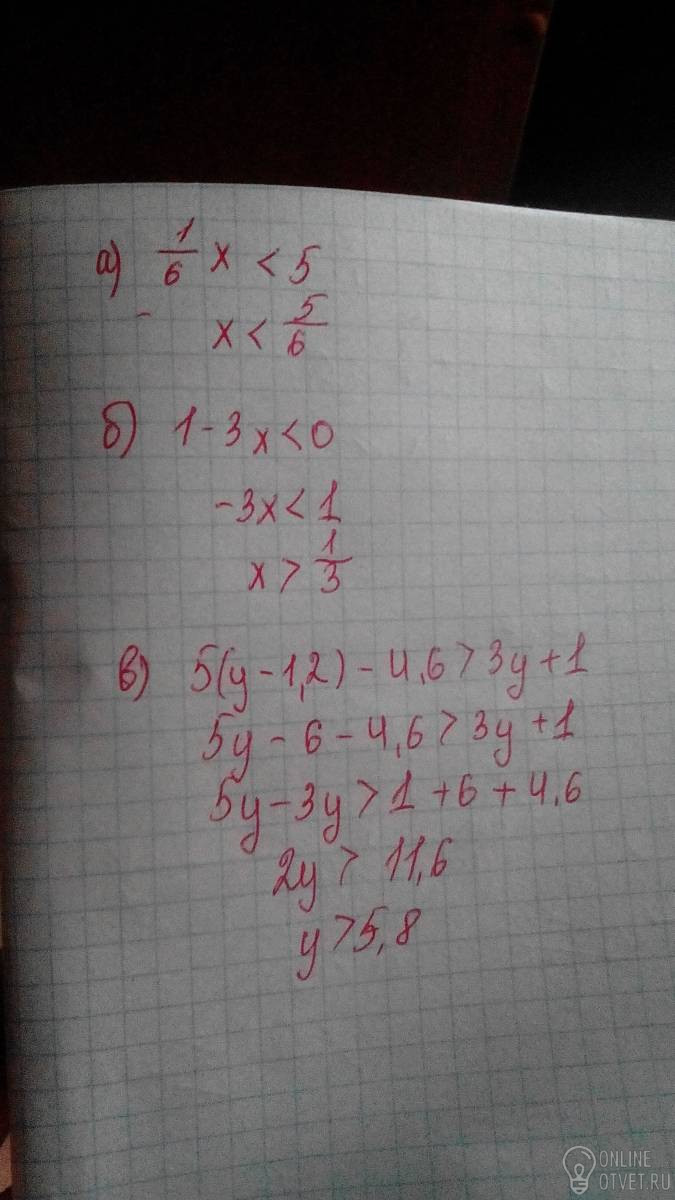 а) 1/6 x < 5
x < 5/6
б) 1 - 3x < 0
-3x < 1
x > 1/3
в) 5(y - 1,2) - 4,6 > 3y + 1
5y - 6 - 4,6 > 3y + 1
5y - 3y > 1 + 6 + 4,6
2y > 11,6
y > 5,8
ONLINE
OTVET.RU